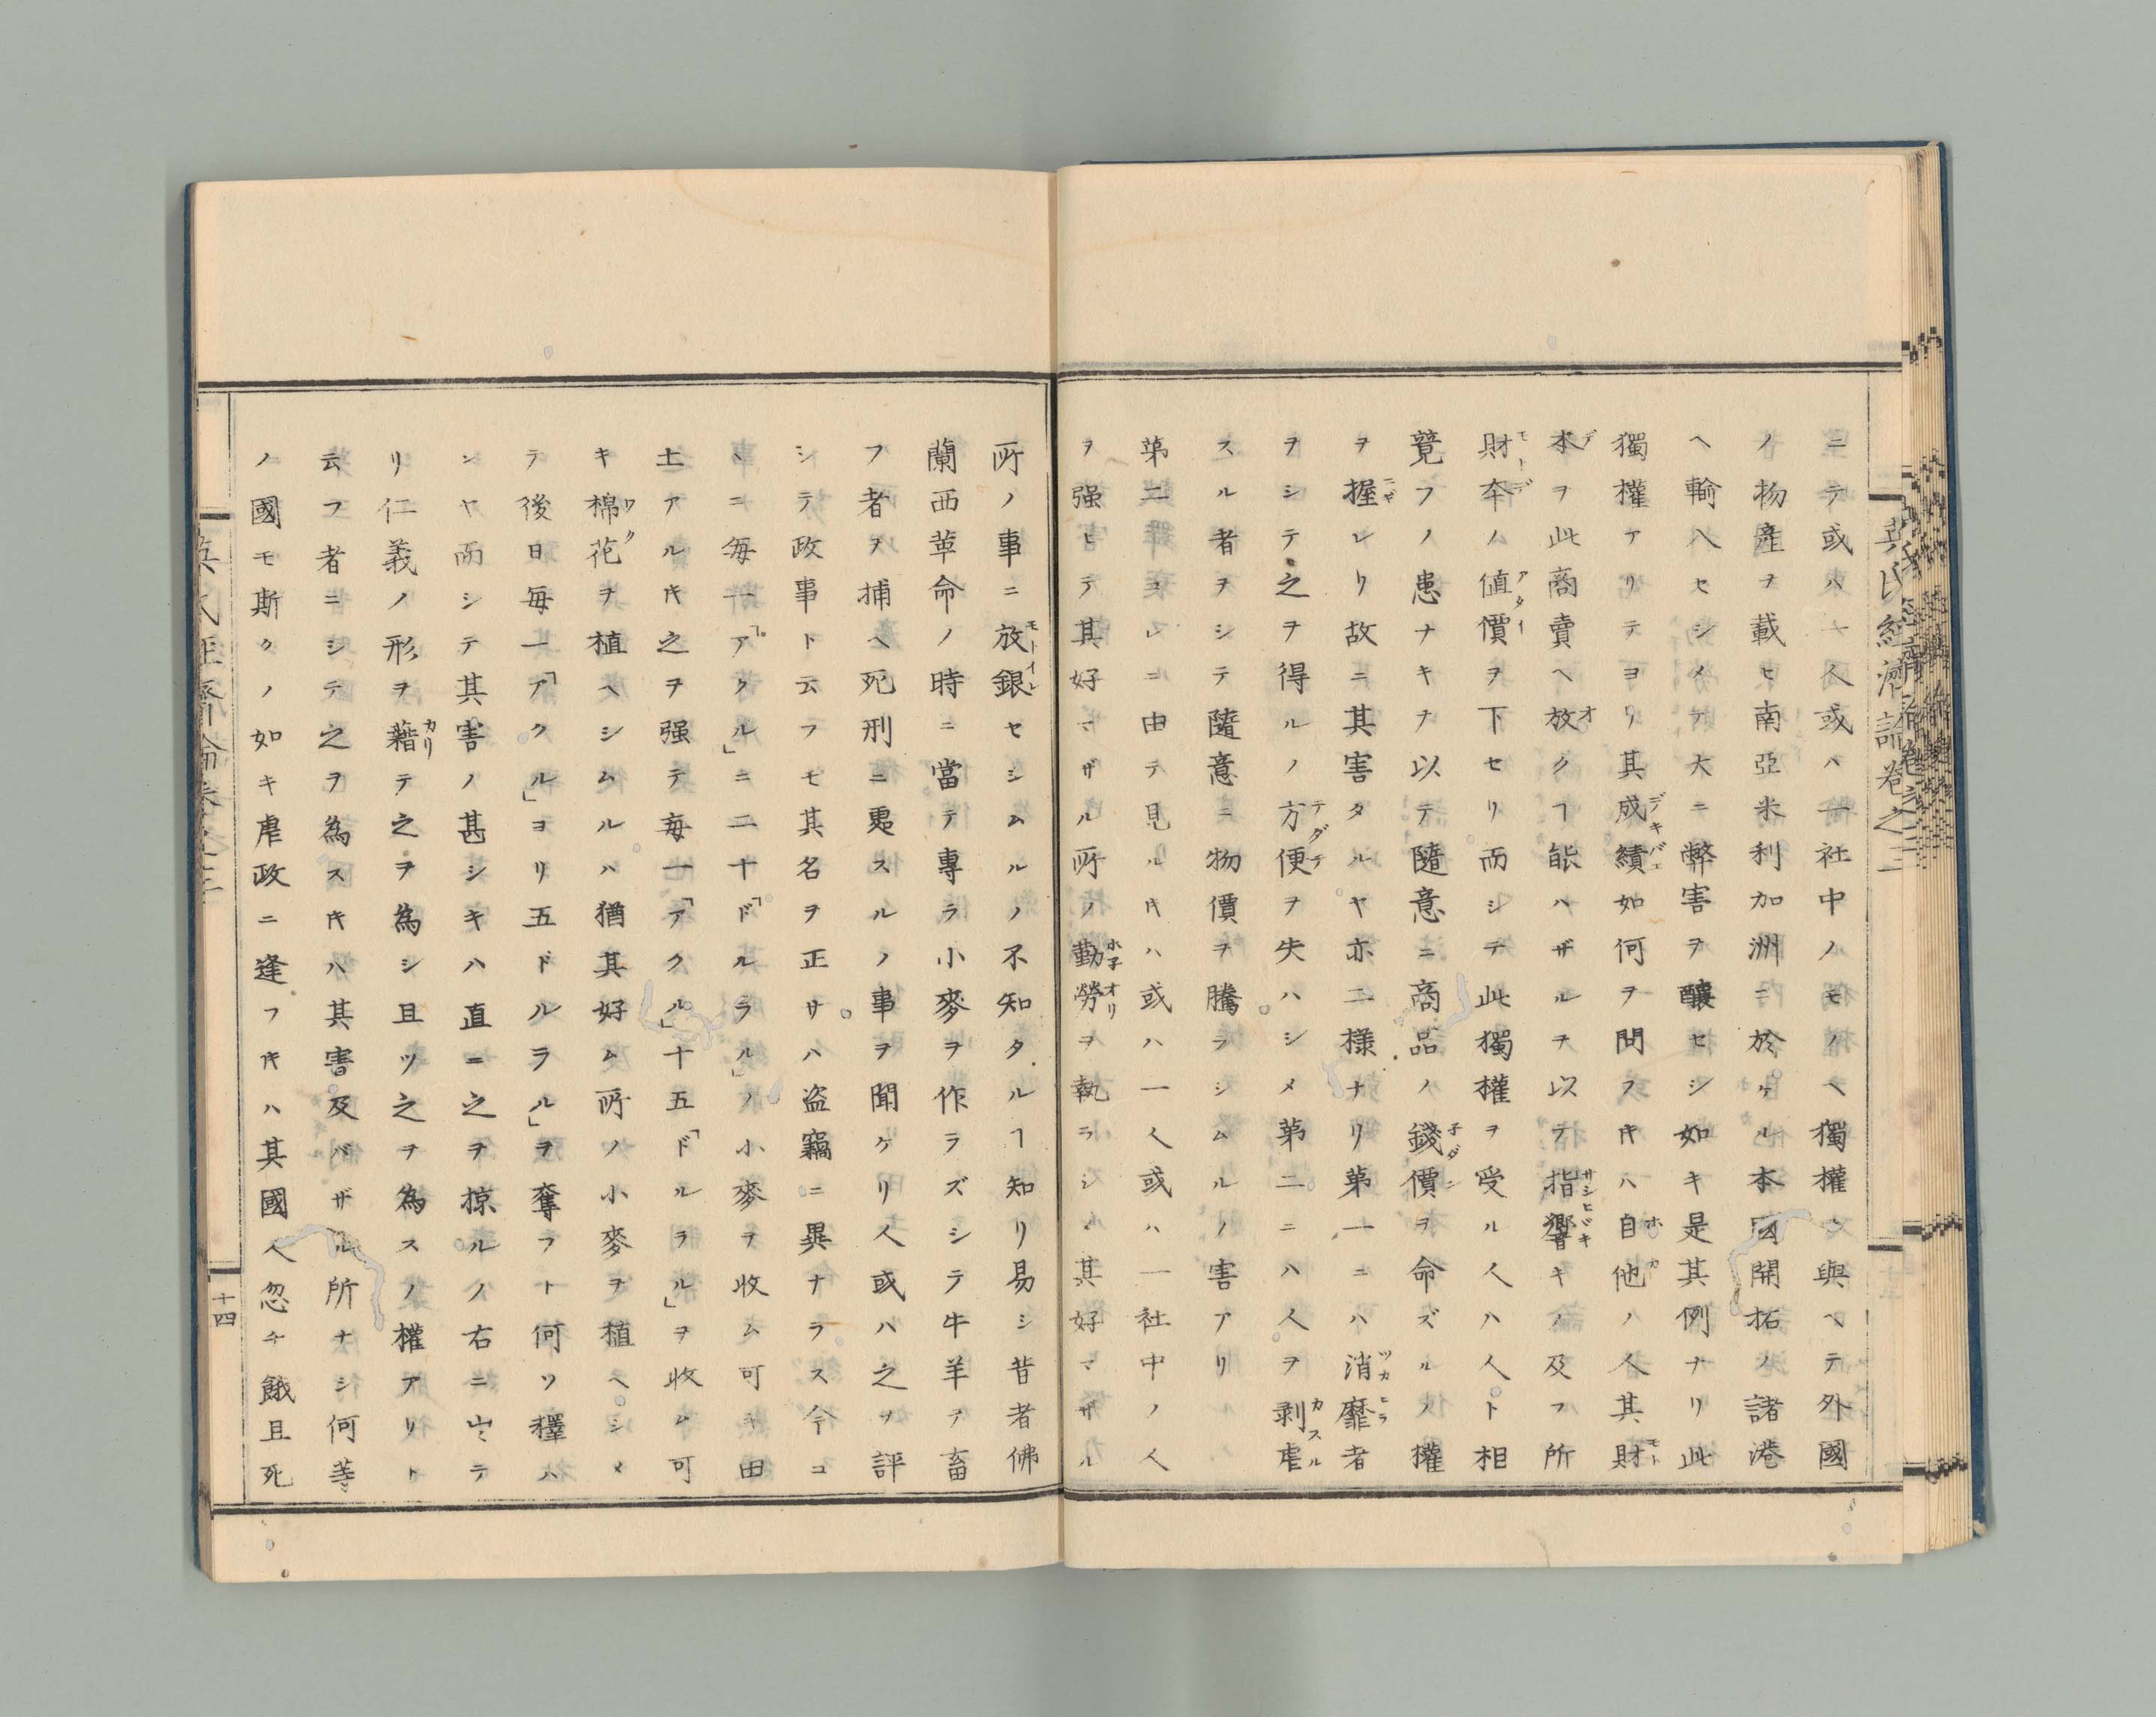 ニテ或ハ一人或ハ一社中ノモノヘ獨權ヲ與ヘテ外國
ノ物産ヲ載セ南亞米利加洲ニ於ケル本國開拓ノ諸港
ヘ輸入セシメテ大ニ弊害ヲ釀セシ如キ是其例ナリ此
獨權アリテヨリ其成績如何ヲ問フキハ自他ノ人其財
本ヲ此商賣ヘ放クヿ能ハザルヲ以テ指響キノ及フ所
財本ノ値價ヲ下セリ而シテ此獨權ヲ受ル人ハ人ト相
競フノ患ナキヲ以テ隨意ニ商品ノ錢價ヲ命ズルノ權
ヲ握レリ故ニ其害タルヤ亦二樣ナリ第一ニハ消靡者
ヲシテ之ヲ得ルノ方便ヲ失ハシメ第二ニハ人ヲ剥虐
スル者ヲシテ隨意ニ物價ヲ騰ラシムルノ害アリ
第二コレニ由テ見ルキハ或ハ一人或ハ一社中ノ人
ヲ强ヒテ其好マザル所ノ勤勞ヲ執ラシメ其好マザル
所ノ事ニ放銀セシムルノ不知タルヿ知リ易シ昔者佛
蘭西革命ノ時ニ當テ專ラ小麥ヲ作ラズシテ牛羊ヲ畜
フ者ヲ捕ヘ死刑ニ遇スルノ事ヲ聞ケリ人或ハ之ヲ評
シテ政事ト云フモ其名ヲ正サハ盗竊ニ異ナラス今コ
ヽニ毎一「アクル」ニ二十「ドルラル」ノ小麥ヲ收ム可キ田
土アルキ之ヲ强テ毎一「アクル」十五「ドルラル」ヲ收ム可
キ棉花ヲ植ヘシムルハ猶其好ム所ノ小麥ヲ植ヘシメ
テ後日毎一「アクル」ヨリ五ドルラル」ヲ奪フト何ソ擇ハ
ンヤ而シテ其害ノ甚シキハ直ニ之ヲ掠ルノ右ニ出テ
リ仁義ノ形ヲ藉テ之ヲ為シ且ツ之ヲ為スノ權アリト
云フ者ニシテ之ヲ為スキハ其害及バザル所ナシ何等
ノ國モ斯クノ如キ虐政ニ逢フキハ其國人忽チ餓且死
十四